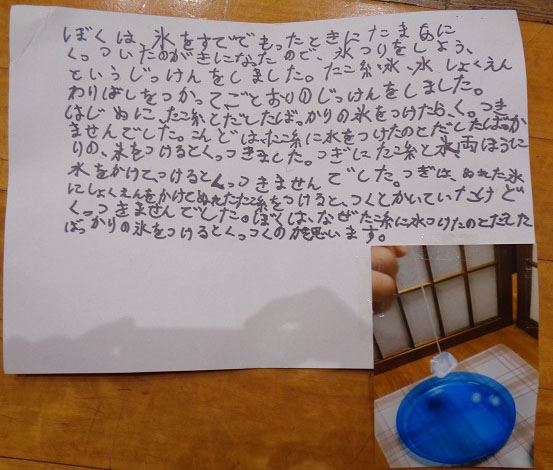 ぼくは、氷をすでもったときにたまに
くっついたのがきになったので、氷つりをしよう、
というじっけんをしました。たこ糸、氷、水しょくえん
わりばしをつかって、ごとおりのじっけんをしました。
はじめに、たこ糸とだしたばっかりの氷をつけたら、くっつき
ませんでした。こんどは、たこ糸に水をつけたのとだしたばっか
りの、氷をつけるとくっつきました。つぎにたこ糸と氷両ほうに
水をかけてつけるとくっつきませんでした。つぎは、ぬれた氷
にしょくえんをかけてぬれたたこ糸をつけると、つくとかいていたけど
くっつきませんでした。ぼくは、なぜたこ糸に水つけたのとだした
ばっかりの氷をつけるとくっつくのか思います。